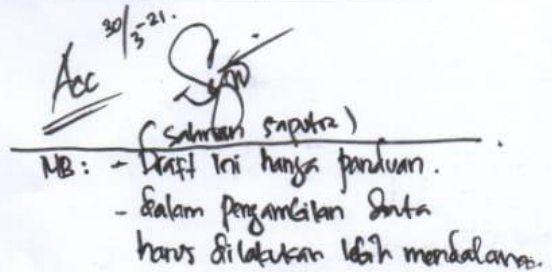 30/3-21.
Acc
(Salman Saputra)
NB: - Draft ini hanya panduan.
- dalam pengambilan data
harus dilakukan lebih mendalam.